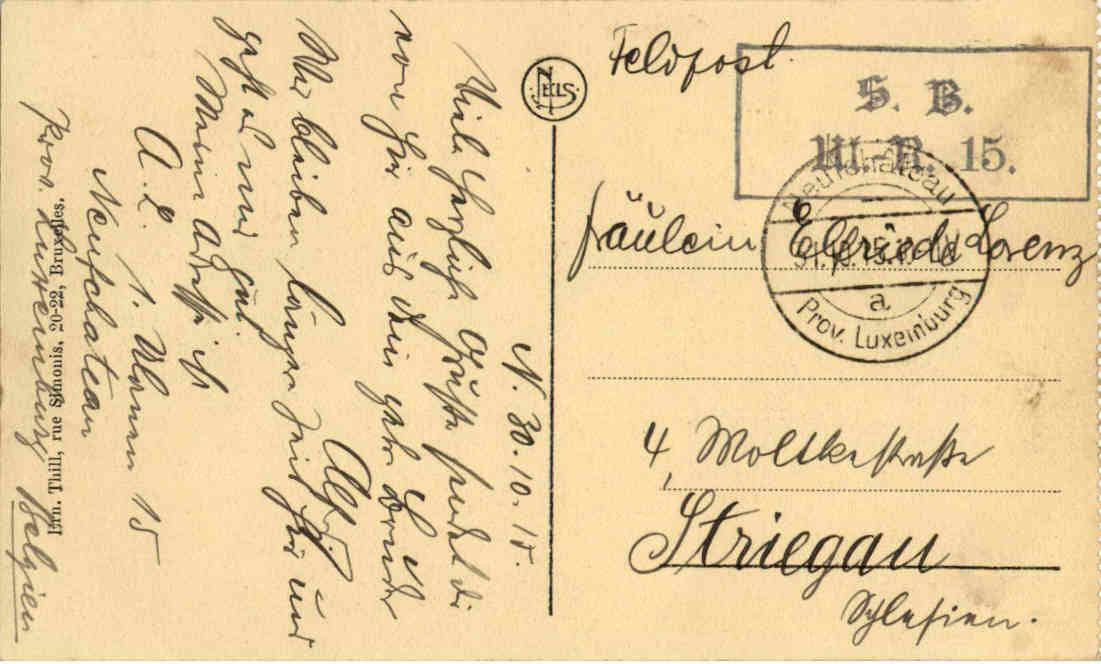 N. 30.10.15.
Viele herzliche Grüße sendet dir
von hier aus dein Bruder
Wir bleiben länger Zeit hier und
geht es mir gut.
Meine Adresse ist
A. L. 1. Ulanen 15
Neufchateau
Prov. Luxemburg Belgien
Ern. Thill, rue Simonis, 20-22, Bruxelles.
NELS
Feldpost.
S. B.
Ul.-R. 15.
Neufchateau
a
Prov. Luxemburg
Fräulein Elfriede Lorenz
4, Moltkestraße
Striegau
Schlesien.